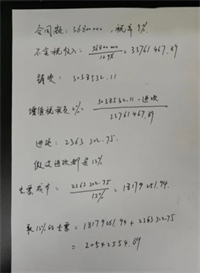 合同款: 36800000, 税率9%
不含税收入: 36800000/1.09% = 33761467.89
销项: 3038532.11
增值税税负2% = 3038532.11-进项/33761467.89
进项: 2363302.75
假设进项都是13%
发票成本 = 2363302.75/13% = 18179251.94
取13%的发票 = 18179251.94 + 2363302.75
= 20542554.69